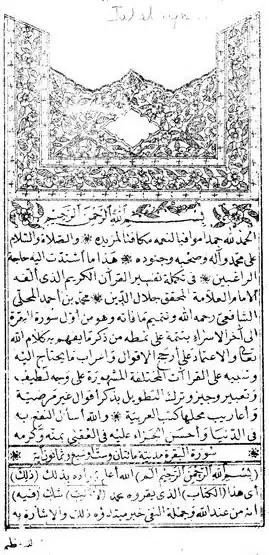 بسم الله الرحمن الرحيم
الحمد لله حمدا موافيا لنعمه مكافئا لمزيده ❋ والصلاة والسلام
على محمد وآله وصحبه وجنوده ❋ هذا ما اشتدت اليه حاجة
الراغبين ❋ في تكملة تفسير القرآن الكريم الذي ألفه
الامام العلامة المحقق جلال الدين ❋ محمد بن أحمد المحلي
الشافعي رحمه الله وتتميم ما فاته وهو من أول سورة البقرة
الى آخر الاسراء بتتمة على نمطه من ذكر ما يفهم به كلام الله
تعالى والاعتماد على أرجح الاقوال واعراب ما يحتاج اليه
وتنبيه على القراآت المختلفة المشهورة على وجه لطيف
وتعبير وجيز وترك التطويل بذكر أقوال غير مرضية
وأعاريب محلها كتب العربية ❋ والله أسأل النفع به
في الدنيا وأحسن الجزاء عليه في العقبى بمنه وكرمه
سورة البقرة مدنية مائتان وست أو سبع وثمانون آية
(بسم الله الرحمن الرحيم الم) الله أعلم بمراده بذلك (ذلك)
أي هذا (الكتاب) الذي يقرؤه محمد (لا ريب) شك (فيه)
أنه من عند الله وجملة النفي خبر مبتدؤه ذلك والاشارة به